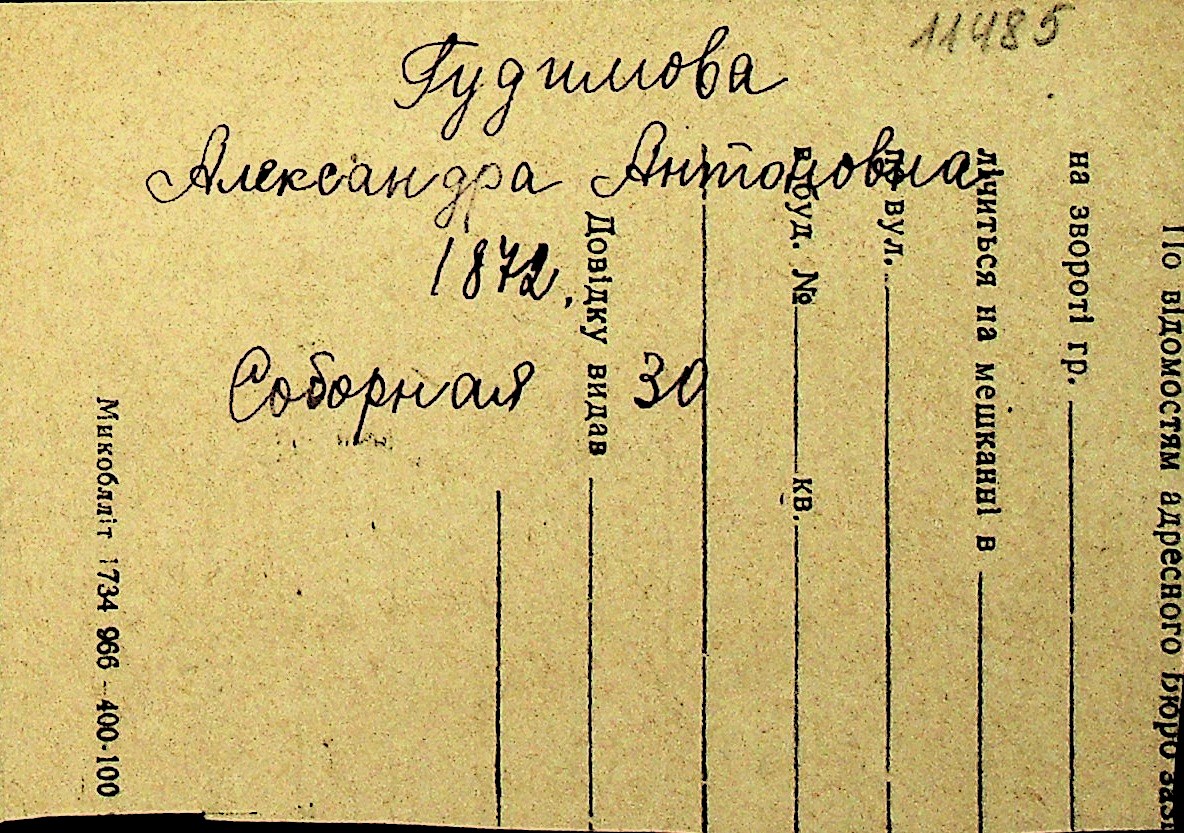 11485
Гудимова
Александра Антоновна
1872.
Соборная 30
По відомостям адресного Бюро
на звороті гр.
лічиться на мешканні в
вул.
буд. № кв.
Довідку видав
Микобліт 1734 966-400-100